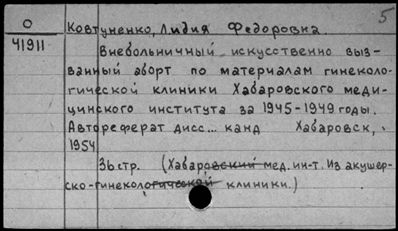 5
О
41911
Ковтуненко, Лидия Федоровна.
Внебольничный искусственно выз-
ванный аборт по материалам гинеколо-
гической клиники Хабаровского меди-
цинского института за 1945-1949 годы.
Автореферат дисс... канд Хабаровск,
1954
36 стр. (Хабаровский мед. ин-т. Из акушер-
ско-гинекологической клиники.)